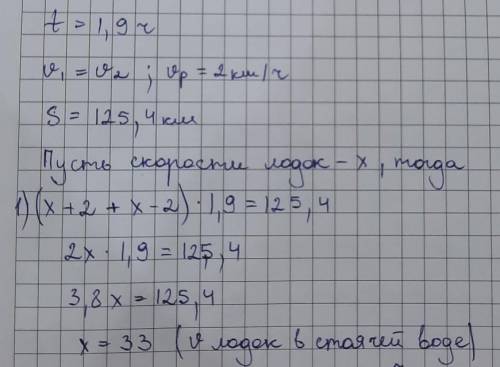 t = 1,9 ч
v₁ = v₂ ; vр = 2 км/ч
S = 125,4 км
Пусть скорости лодок – x, тогда
1) (x + 2 + x – 2) · 1,9 = 125,4
2x · 1,9 = 125,4
3,8x = 125,4
x = 33 (v лодок в стоячей воде)